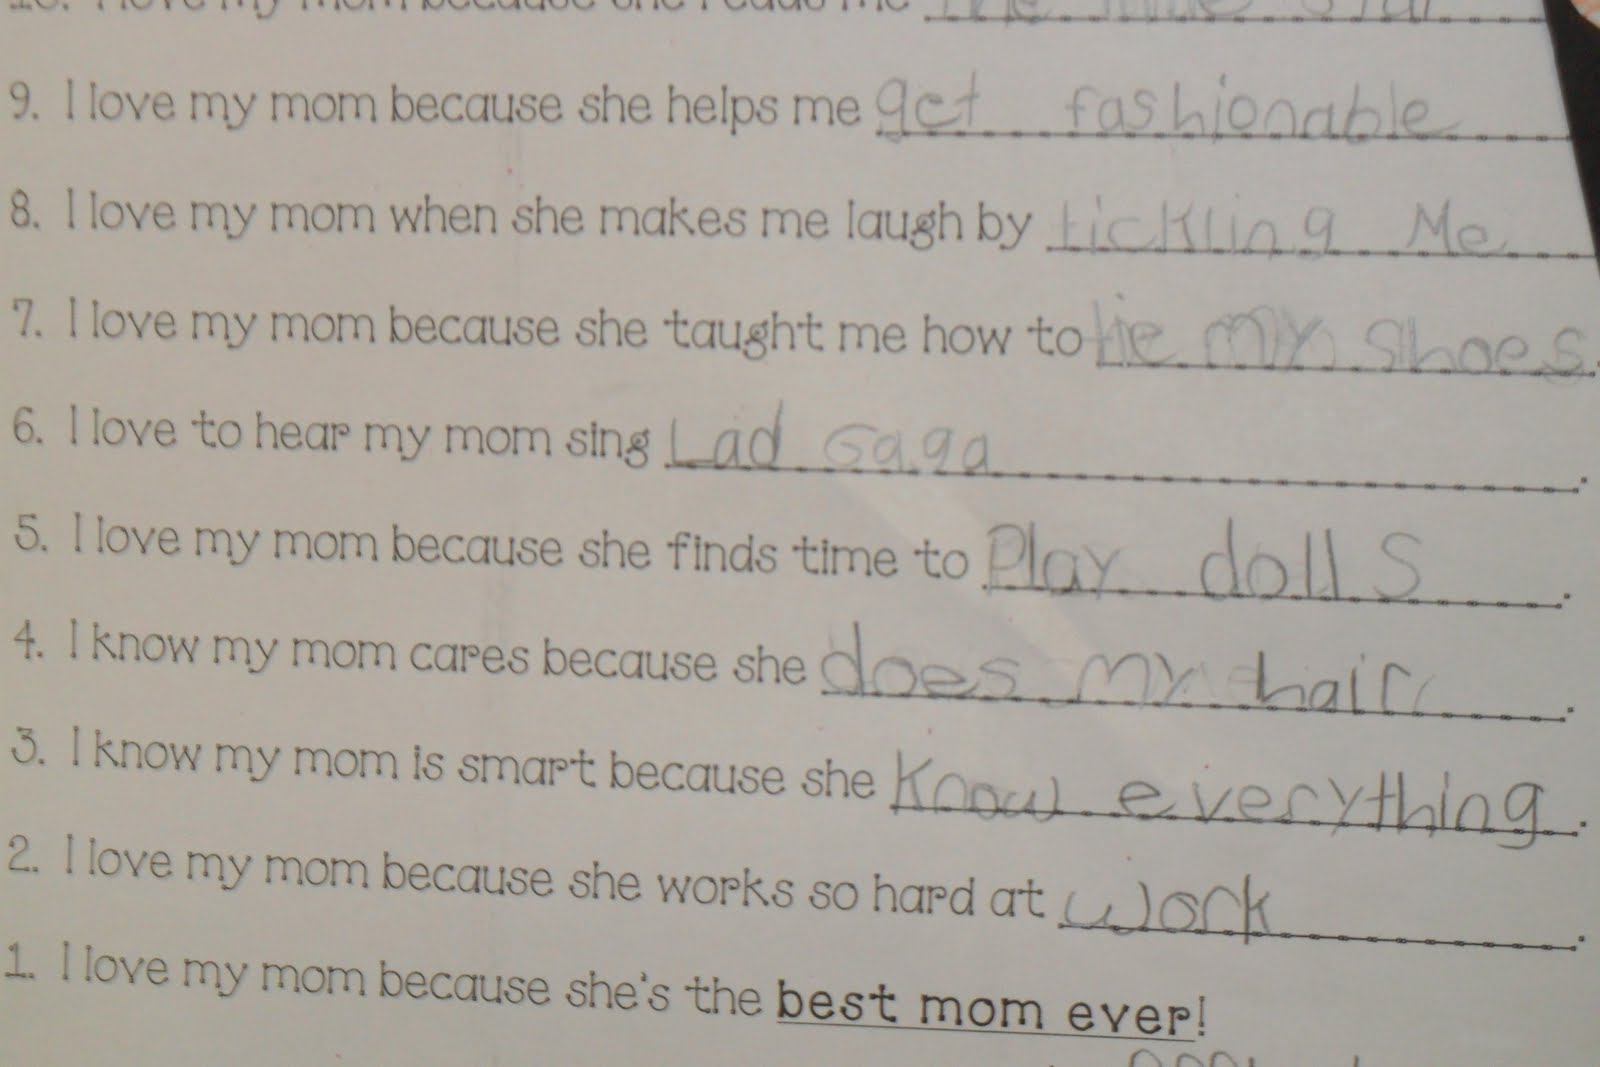 10. I love my mom because she reads me the
9. I love my mom because she helps me get fashionable
8. I love my mom when she makes me laugh by tickling Me
7. I love my mom because she taught me how to tie my shoes.
6. I love to hear my mom sing Lad Gaga.
5. I love my mom because she finds time to Play dolls.
4. I know my mom cares because she does my hair.
3. I know my mom is smart because she Know everything.
2. I love my mom because she works so hard at work.
1. I love my mom because she's the best mom ever!